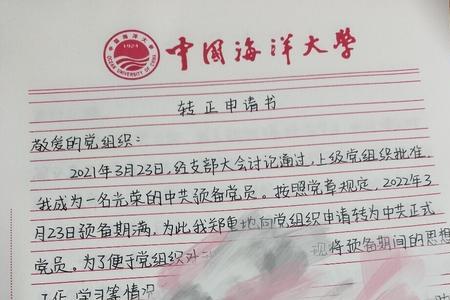 中国海洋大学
1924
OCEAN UNIVERSITY OF CHINA
转正申请书
敬爱的党组织：
2021年3月23日，经支部大会讨论通过，上级党组织批准，
我成为一名光荣的中共预备党员。按照党章规定，2022年3
月23日预备期满，为此我郑重地向党组织申请转为中共正式
党员。为了便于党组织对 现将预备期间的思想
工作、学习等情况